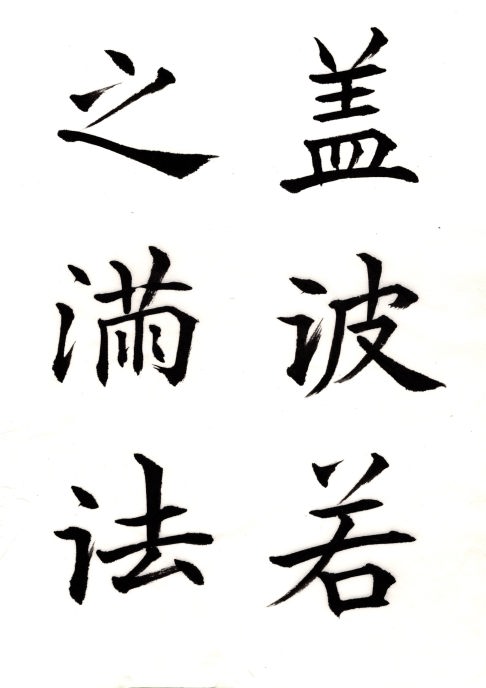 盖波若
之满法